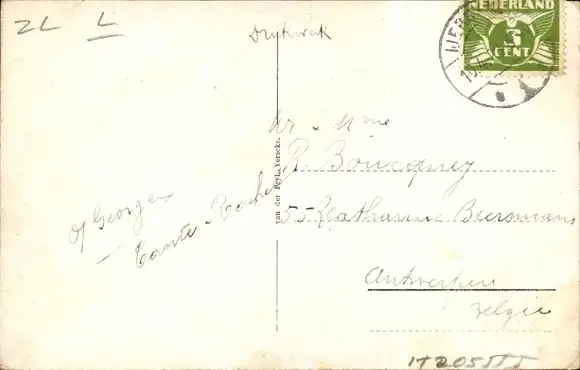 ZL L
Drukwerk
NEDERLAND
3
CENT
Mr & Mme
R.Boucquey
55 Katharina Beersmans
Antwerpen
Belgie
o/ George
Tante
van der Peyl, Yerseke.